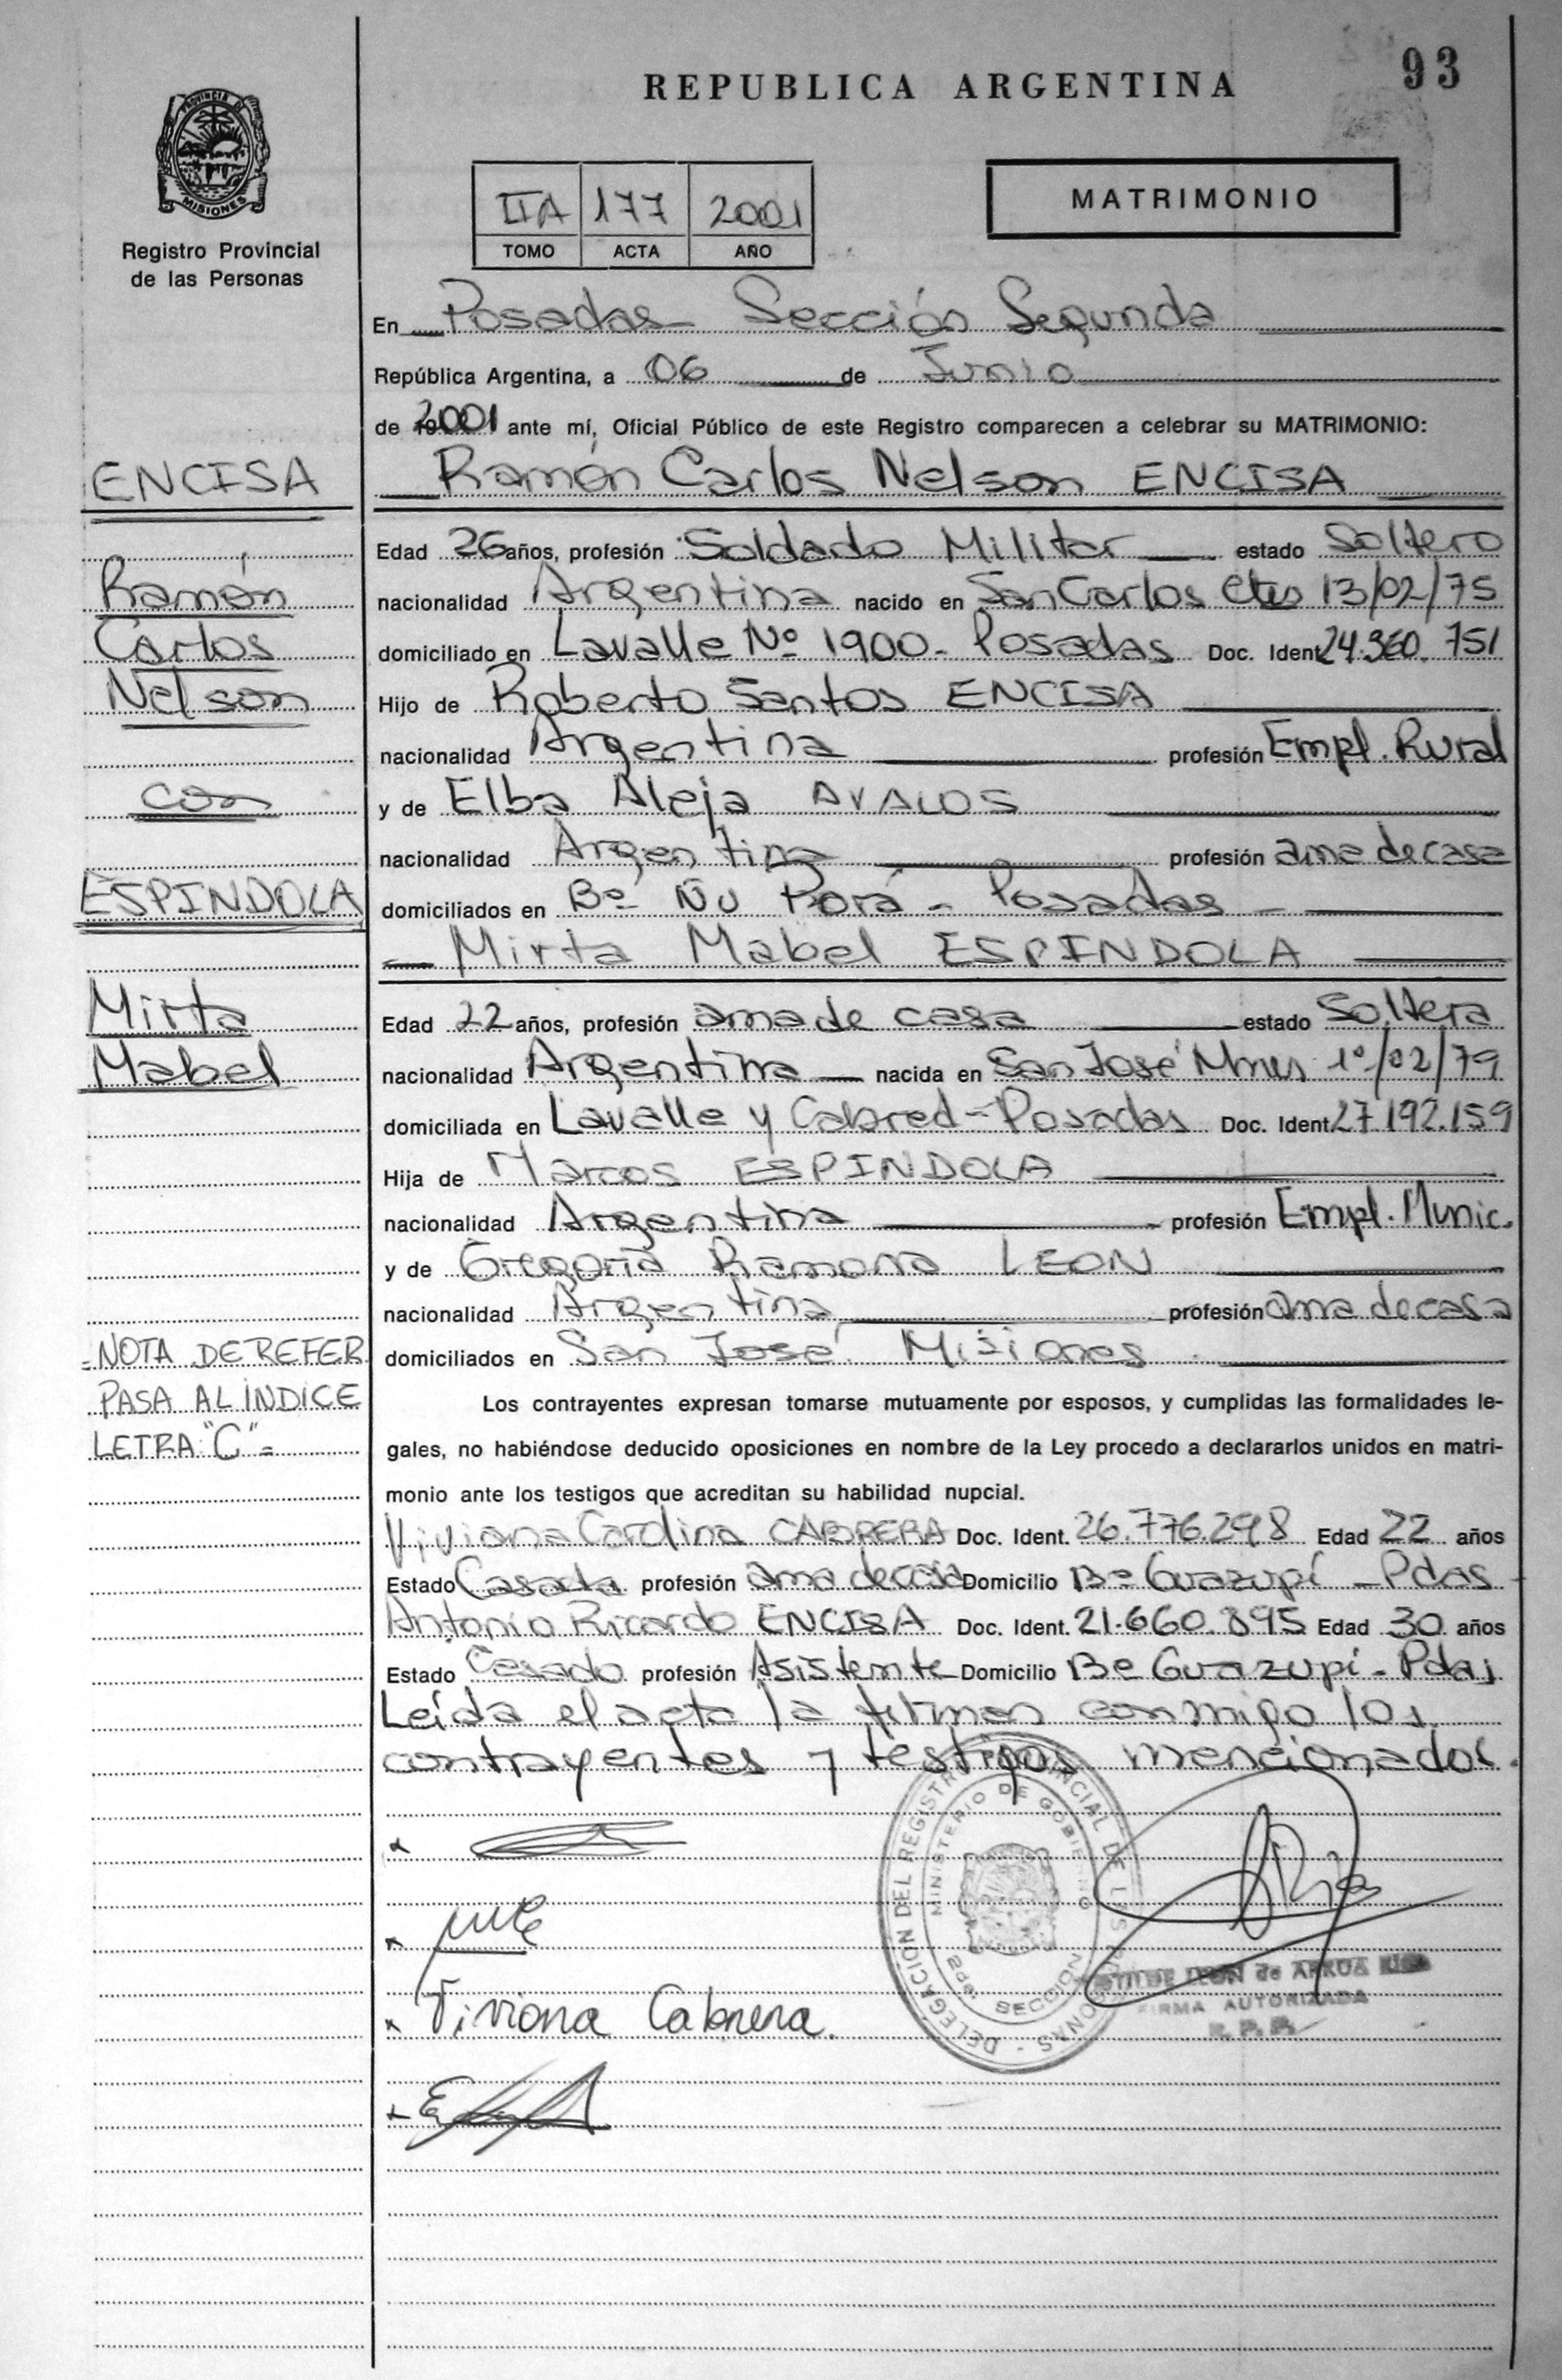 93
REPUBLICA ARGENTINA
PROVINCIA DE
MISIONES
Registro Provincial
de las Personas
IIA 177 2001
TOMO ACTA AÑO
MATRIMONIO
En Posadas Sección Segunda
República Argentina, a 06 de Junio
de 2001 ante mí, Oficial Público de este Registro comparecen a celebrar su MATRIMONIO:
ENCISA
Ramón Carlos Nelson ENCISA
Edad 26 años, profesión Soldado Militar estado Soltero
Ramón
nacionalidad Argentina nacido en San Carlos Ctes 13/02/75
Carlos
domiciliado en Lavalle Nº 1900 - Posadas Doc. Ident 24.360.751
Nelson
Hijo de Roberto Santos ENCISA
nacionalidad Argentina profesión Empl. Rural
con
y de Elba Aleja AVALOS
nacionalidad Argentina profesión ama de casa
ESPINDOLA
domiciliados en Bº Ñu Porá - Posadas -
Mirta Mabel ESPINDOLA
Mirta
Edad 22 años, profesión ama de casa estado Soltera
Mabel
nacionalidad Argentina nacida en San José Mnes 1º/02/79
domiciliada en Lavalle y Cabred - Posadas Doc. Ident 27.192.159
Hija de Marcos ESPINDOLA
nacionalidad Argentina profesión Empl. Munic.
y de Gregoria Ramona LEON
nacionalidad Argentina profesión ama de casa
domiciliados en San José Misiones
=NOTA DE REFER
PASA AL INDICE
LETRA "C"=
Los contrayentes expresan tomarse mutuamente por esposos, y cumplidas las formalidades le-
gales, no habiéndose deducido oposiciones en nombre de la Ley procedo a declararlos unidos en matri-
monio ante los testigos que acreditan su habilidad nupcial.
Viviana Carolina CABRERA Doc. Ident. 26.776.298 Edad 22 años
Estado Casada profesión ama de casa Domicilio Bº Guazupí - Pdas
Antonio Ricardo ENCISA Doc. Ident. 21.660.895 Edad 30 años
Estado Casado profesión Asistente Domicilio Bº Guazupí - Pdas
Leída el acta la firman conmigo los
contrayentes y testigos mencionados.
DELEGACION DEL REGISTRO PROVINCIAL DE LAS PERSONAS
MINISTERIO DE GOBIERNO
SECCION
LEON de
FIRMA AUTORIZADA
R. P. P.
Viviana Cabrera.